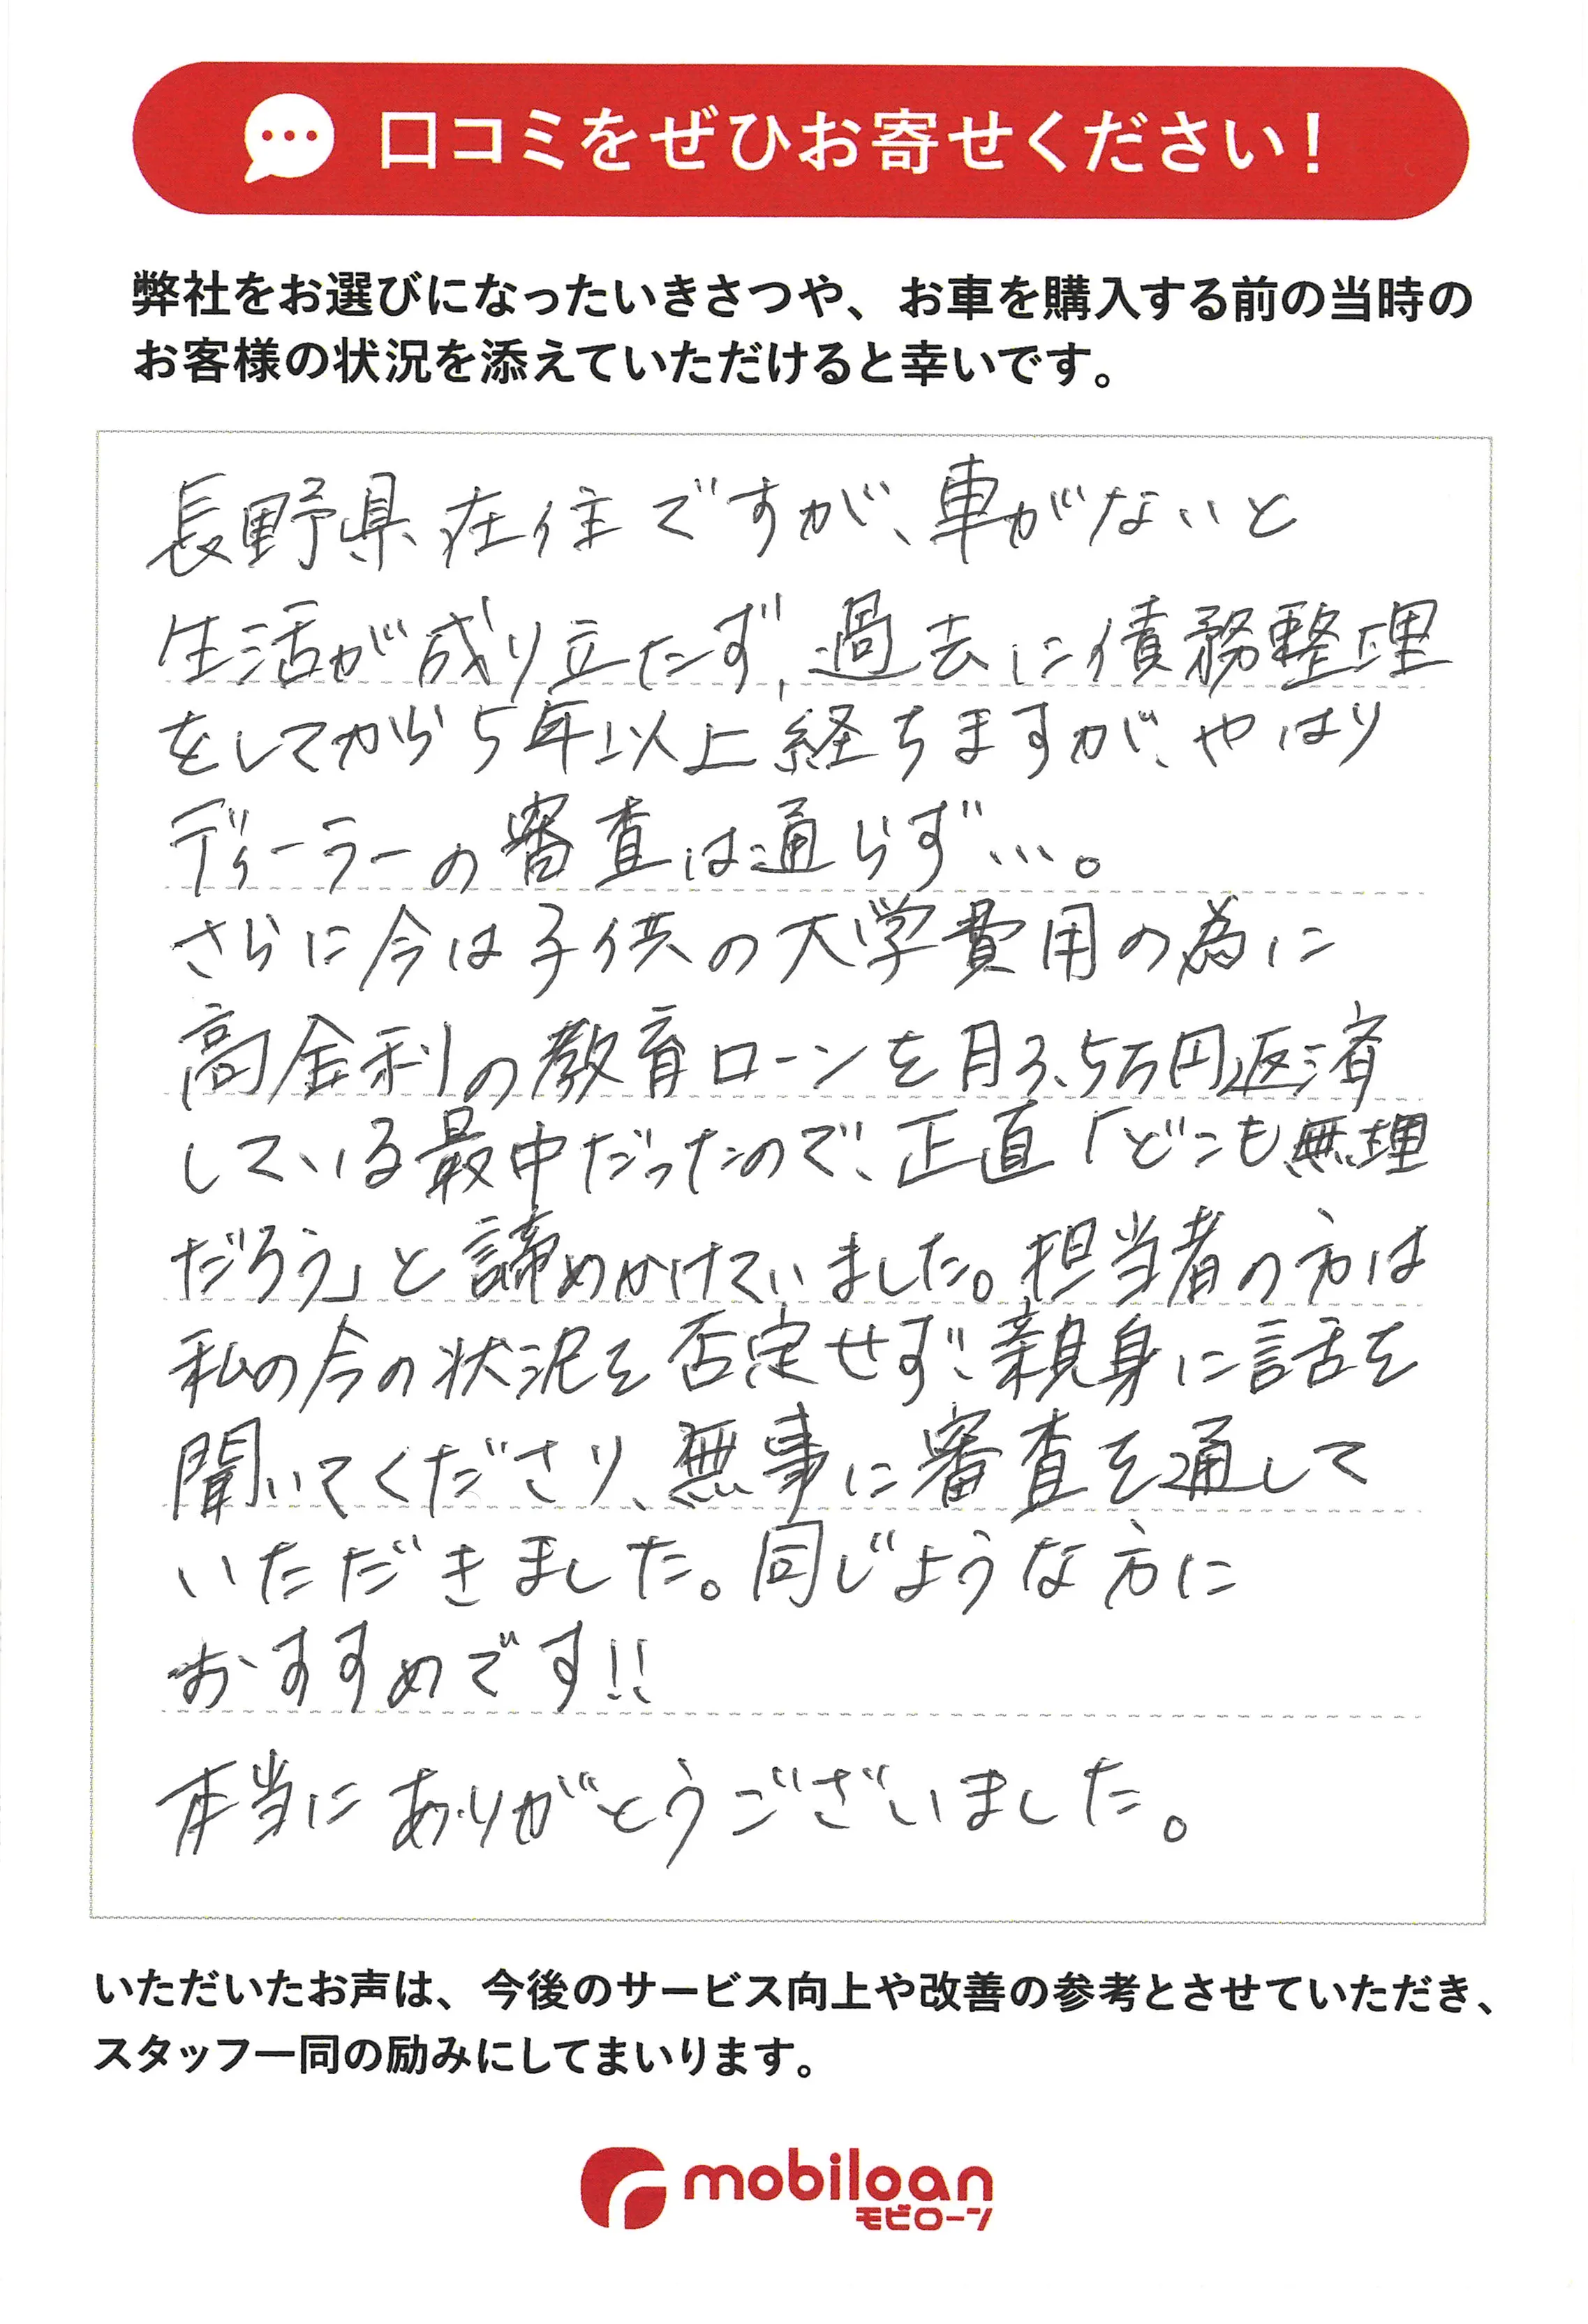 口コミをぜひお寄せください！
弊社をお選びになったいきさつや、お車を購入する前の当時の
お客様の状況を添えていただけると幸いです。
長野県在住ですが、車がないと
生活が成り立たず、過去に債務整理
をしてから5年以上経ちますが、やはり
ディーラーの審査は通らず…。
さらに今は子供の大学費用の為に
高金利の教育ローンを月3.5万円返済
している最中だったので、正直「どこも無理
だろう」と諦めかけていました。担当者の方は
私の今の状況を否定せず、親身に話を
聞いてくださり、無事に審査を通して
いただきました。同じような方に
おすすめです!!
本当にありがとうございました。
いただいたお声は、今後のサービス向上や改善の参考とさせていただき、
スタッフ一同の励みにしてまいります。
mobiloan
モビローン